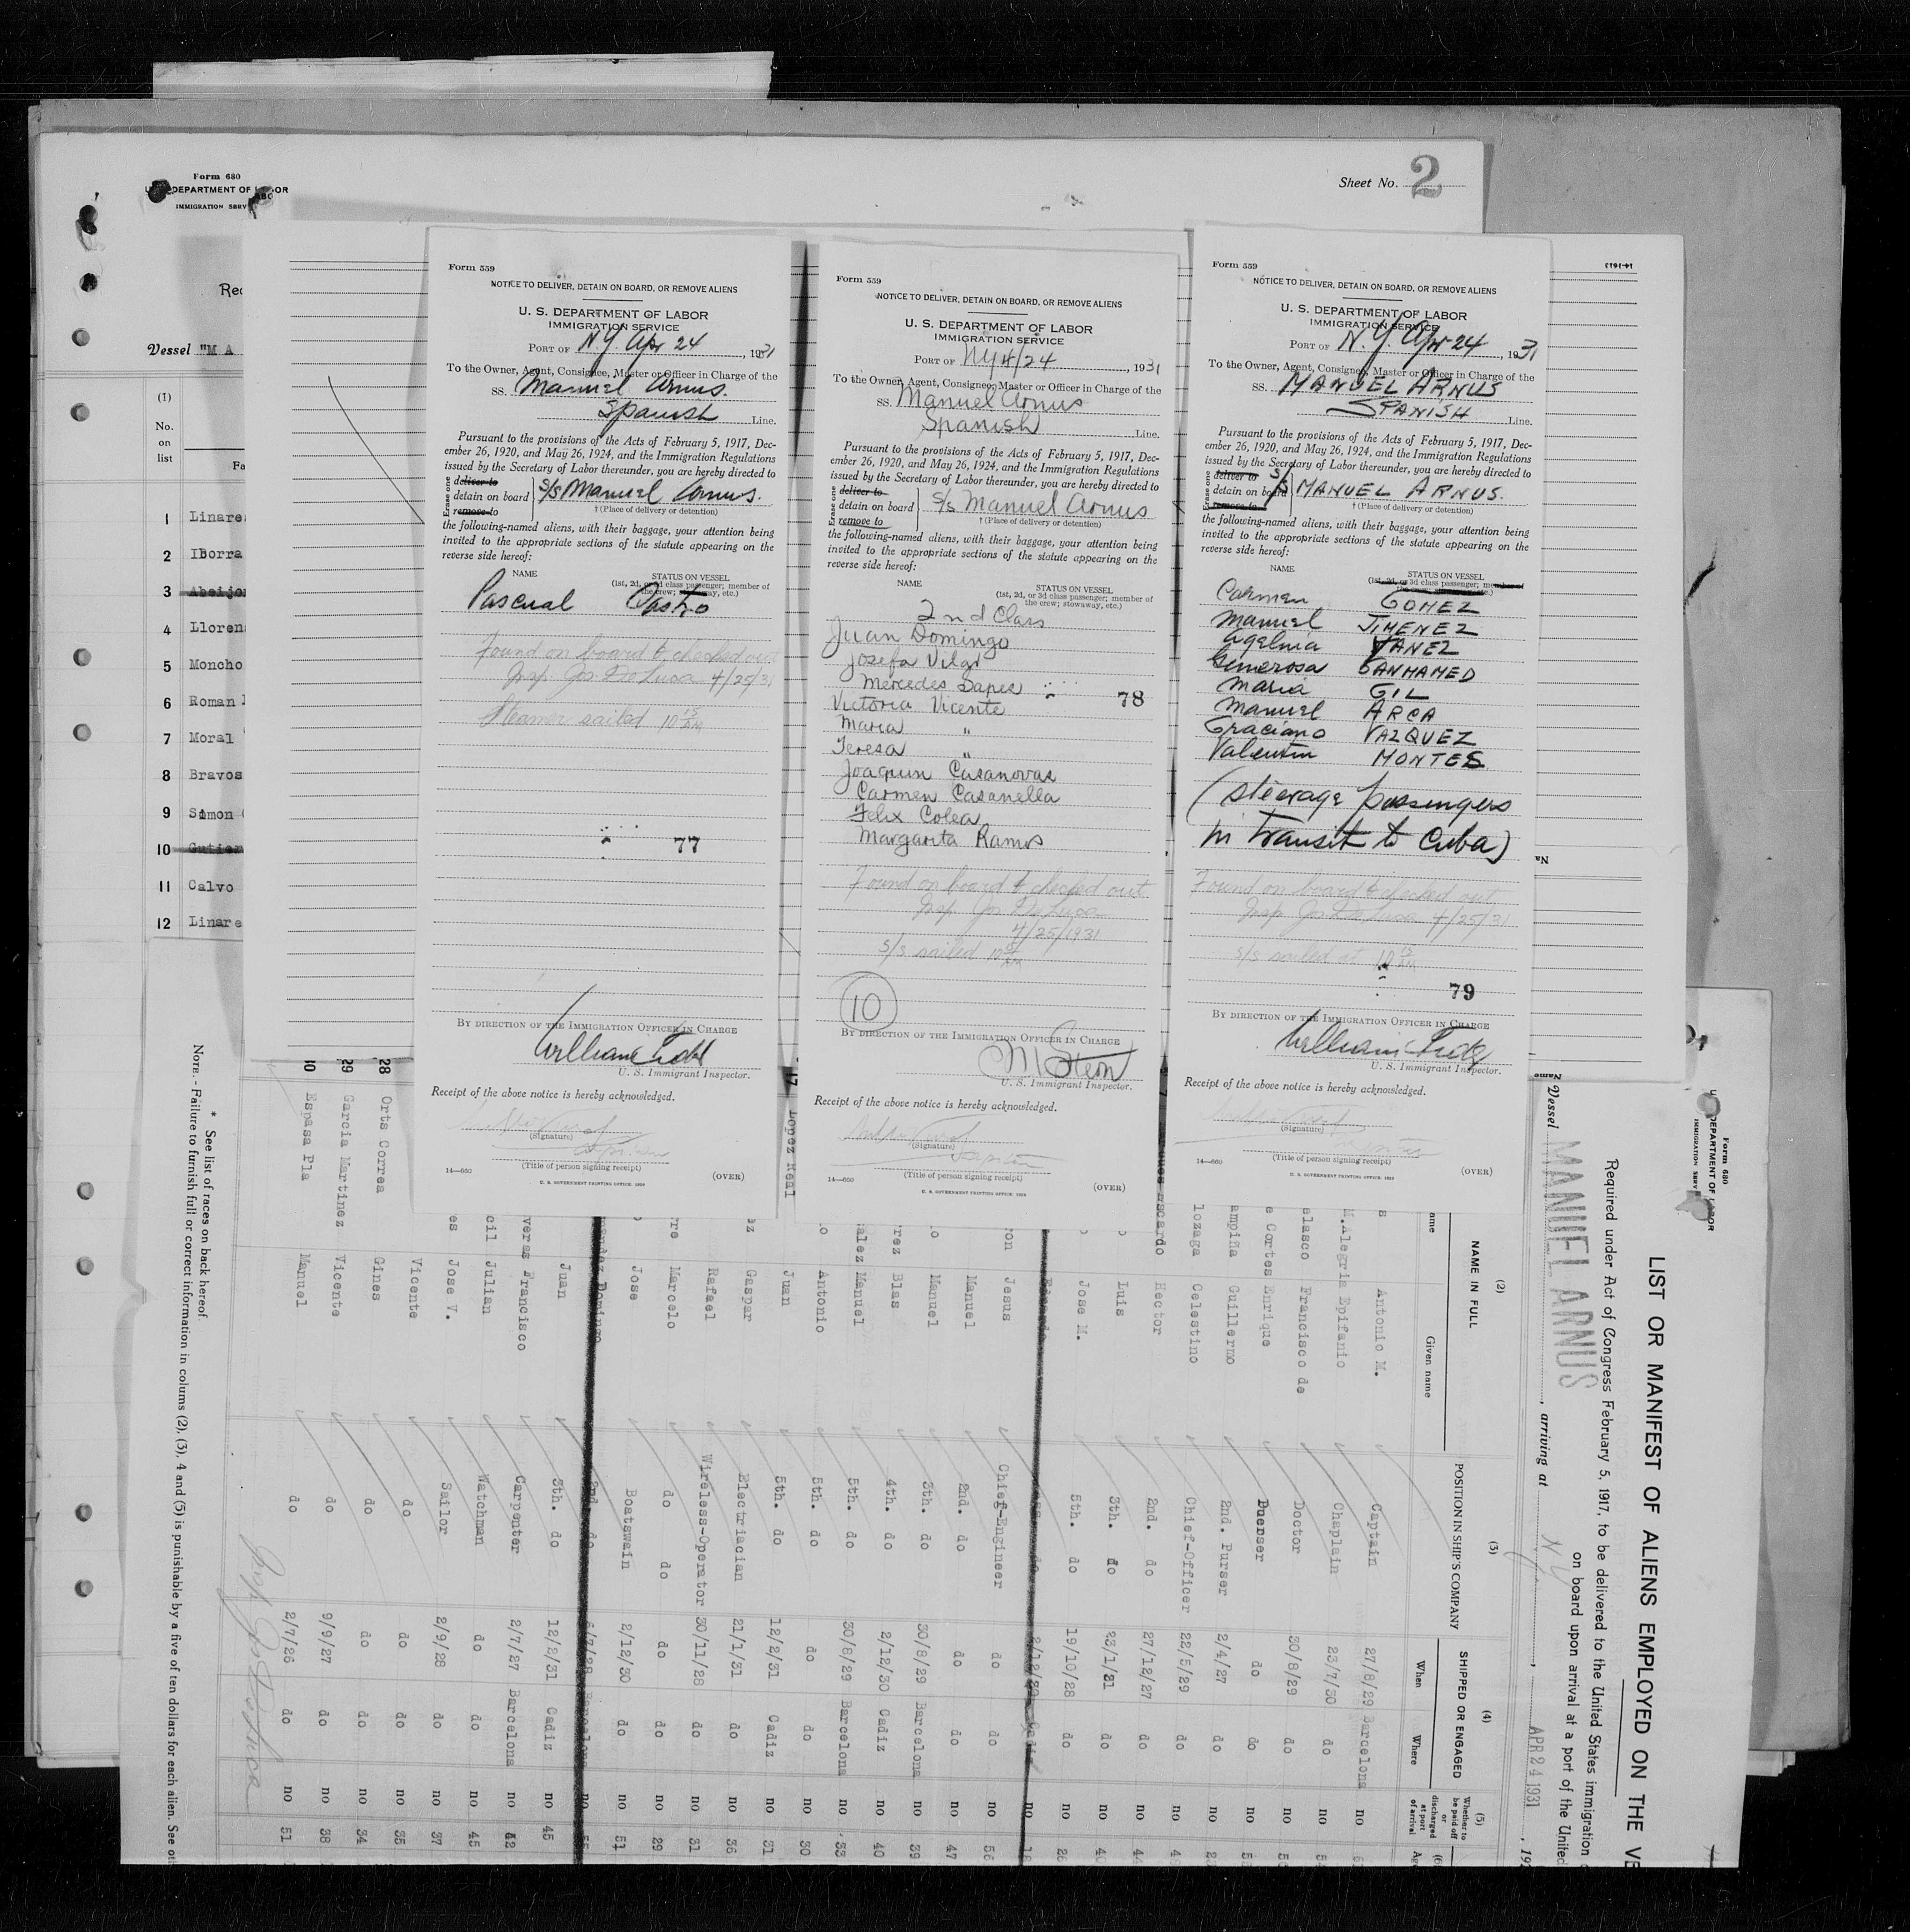 Form 680
U. S. DEPARTMENT OF LABOR
IMMIGRATION SERV
Sheet No. 2
Vessel "M A
(1)
No.
on
list
Fa
1 Linare
2 IBorra
3 Abeijo
4 Lloren
5 Moncho
6 Roman
7 Moral
8 Bravos
9 Simon
10 Gutier
11 Calvo
12 Linare
Form 559
NOTICE TO DELIVER, DETAIN ON BOARD, OR REMOVE ALIENS
U. S. DEPARTMENT OF LABOR
IMMIGRATION SERVICE
PORT OF N.Y. Apr 24, 1931
To the Owner, Agent, Consignee, Master or Officer in Charge of the
SS. Manuel Arnus.
Spanish Line.
Pursuant to the provisions of the Acts of February 5, 1917, Dec-
ember 26, 1920, and May 26, 1924, and the Immigration Regulations
issued by the Secretary of Labor thereunder, you are hereby directed to
Erase one
deliver to
detain on board S/S Manuel Arnus.
remove to
† (Place of delivery or detention)
the following-named aliens, with their baggage, your attention being
invited to the appropriate sections of the statute appearing on the
reverse side hereof:
NAME STATUS ON VESSEL
(1st, 2d, or 3d class passenger; member of
the crew; stowaway, etc.)
Pascual Castro
Found on board & checked out
Insp. Jos. DeLuca 4/25/31
Steamer sailed 10 15 AM
77
BY DIRECTION OF THE IMMIGRATION OFFICER IN CHARGE
U. S. Immigrant Inspector.
Receipt of the above notice is hereby acknowledged.
(Signature)
(Title of person signing receipt)
14—660
U. S. GOVERNMENT PRINTING OFFICE: 1929
(OVER)
Form 559
NOTICE TO DELIVER, DETAIN ON BOARD, OR REMOVE ALIENS
U. S. DEPARTMENT OF LABOR
IMMIGRATION SERVICE
PORT OF NY 4/24, 1931
To the Owner, Agent, Consignee, Master or Officer in Charge of the
SS. Manuel Arnus
Spanish Line.
Pursuant to the provisions of the Acts of February 5, 1917, Dec-
ember 26, 1920, and May 26, 1924, and the Immigration Regulations
issued by the Secretary of Labor thereunder, you are hereby directed to
Erase one
deliver to
detain on board S/s Manuel Arnus
remove to
† (Place of delivery or detention)
the following-named aliens, with their baggage, your attention being
invited to the appropriate sections of the statute appearing on the
reverse side hereof:
NAME STATUS ON VESSEL
(1st, 2d, or 3d class passenger; member of
the crew; stowaway, etc.)
2nd Class
Juan Domingo
Josefa Vilar
Mercedes Sapes
78
Victoria Vicente
Maria "
Teresa "
Joaquin Casanovas
Carmen Casanella
Felix Colea
Margarita Ramos
Found on board & checked out
Insp. Jos. DeLuca
4/25/1931
S/s sailed 10 15 AM
10
BY DIRECTION OF THE IMMIGRATION OFFICER IN CHARGE
M Stern
U. S. Immigrant Inspector.
Receipt of the above notice is hereby acknowledged.
(Signature)
(Title of person signing receipt)
14—660
U. S. GOVERNMENT PRINTING OFFICE: 1929
(OVER)
Form 559
NOTICE TO DELIVER, DETAIN ON BOARD, OR REMOVE ALIENS
U. S. DEPARTMENT OF LABOR
IMMIGRATION SERVICE
PORT OF N.Y. Apr 24, 1931
To the Owner, Agent, Consignee, Master or Officer in Charge of the
SS. MANUEL ARNUS
SPANISH Line.
Pursuant to the provisions of the Acts of February 5, 1917, Dec-
ember 26, 1920, and May 26, 1924, and the Immigration Regulations
issued by the Secretary of Labor thereunder, you are hereby directed to
Erase one
deliver to
detain on board S/S MANUEL ARNUS.
remove to
† (Place of delivery or detention)
the following-named aliens, with their baggage, your attention being
invited to the appropriate sections of the statute appearing on the
reverse side hereof:
NAME STATUS ON VESSEL
(1st, 2d, or 3d class passenger; member of
the crew; stowaway, etc.)
Carmen GOMEZ
Manuel JIMENEZ
YANEZ
SANMAMED
Maria GIL
Manuel ARCA
Graciano VAZQUEZ
Valentin MONTES
(steerage passengers
in transit to Cuba)
Found on board & checked out
Insp. Jos. DeLuca 4/25/31
s/s sailed at 10 15 AM
79
BY DIRECTION OF THE IMMIGRATION OFFICER IN CHARGE
U. S. Immigrant Inspector.
Receipt of the above notice is hereby acknowledged.
(Signature)
(Title of person signing receipt)
14—660
U. S. GOVERNMENT PRINTING OFFICE: 1929
(OVER)
Form 680
U. S. DEPARTMENT OF LABOR
IMMIGRATION SERV
LIST OR MANIFEST OF ALIENS EMPLOYED ON THE VE
Required under Act of Congress February 5, 1917, to be delivered to the United States immigration
on board upon arrival at a port of the United
Vessel MANUEL ARNUS, arriving at N Y, APR 24 1931, 19
(2)
NAME IN FULL
Given name
(3)
POSITION IN SHIP'S COMPANY
(4)
SHIPPED OR ENGAGED
When Where
(5)
Whether to be paid off or discharged at port of arrival
Antonio M. Captain 27/8/29 Barcelona no
M.Alegria Epifanio Chaplain 23/7/30 do no
elasco Francisco de Doctor 30/8/29 do no
e Cortes Enrique Puerser do do no
ampiña Guillermo 2nd. Purser 2/4/27 do no
lozaga Celestino Chief-Officer 22/5/29 do no
Hector 2nd. do 27/12/27 do no
Luis 3th. do 23/1/31 do no
Jose M. 5th. do 19/10/28 do no 26
Eduardo do 2/12/30 Cadiz no 18
Jesus Chief-Engineer do do no 56
Manuel 2nd. do do do no 47
Manuel 3th. do 30/8/29 Barcelona no 39
rez Blas 4th. do 2/12/30 Cadiz no 40
alez Manuel 5th. do 30/8/29 Barcelona no 33
Antonio 5th. do do do no 30
17 Lopez Real Juan 5th. do 12/2/31 Cadiz no 31
ez Gaspar Electriacian 21/1/31 do no 36
Rafael Wireless-Operator 30/11/28 do no 31
rre Marcelo do do do do no 29
Jose Boatswain 2/12/30 do no 51
Domingo 2nd. do 6/7/28 Barcelona no 55
Juan 3th. do 12/2/31 Cadiz no 45
veras Francisco Carpenter 2/7/27 Barcelona no 42
cil Julian Watchman do do no 45
es Jose V. Sailor 2/9/28 do no 37
Vicente do do do no 35
28 Orts Correa Gines do do do no 34
29 Garcia Martinez Vicente do 9/9/27 do no 38
30 Espasa Pla Manuel do 2/7/26 do no 51
Insp. Jos. DeLuca
* See list of races on back hereof.
NOTE.- Failure to furnish full or correct information in colums (2), (3), 4 and (5) is punishable by a five of ten dollars for each alien. See ot